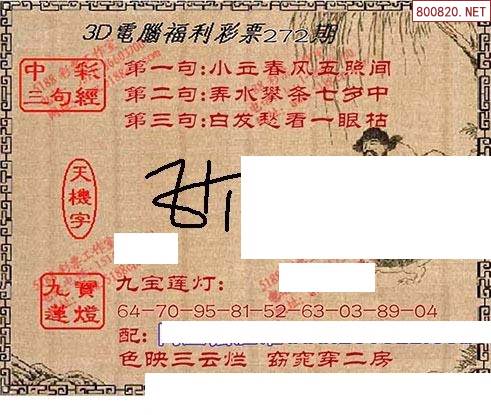 800820.NET
3D電腦福利彩票272期
中彩
三句經
第一句:小立春风五照间
第二句:弄水攀条七岁中
第三句:白发愁看一眼枯
天機字
九寳蓮燈
九宝莲灯:
64-70-95-81-52-63-03-89-04
配:
色映三云烂 窈窕穿二房